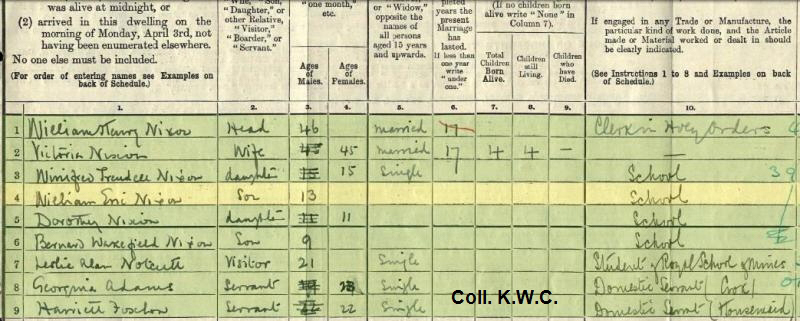 was alive at midnight, or
(2) arrived in this dwelling on the
morning of Monday, April 3rd, not
having been enumerated elsewhere.
No one else must be included.
(For order of entering names see Examples on
back of Schedule.)
"Wife," "Son,"
"Daughter," or
other Relative,
"Visitor,"
"Boarder," or
"Servant."
"one month,"
etc.
Ages
of
Males.
Ages
of
Females.
or "Widow,"
opposite the
names of
all persons
aged 15 years
and upwards.
pleted years
the present
Marriage
has
lasted.
If less than
one year
write
"under
one."
(If no children born
alive write "None" in
Column 7).
Total
Children
Born
Alive.
Children
still
Living.
Children
who
have
Died.
If engaged in any Trade or Manufacture, the
particular kind of work done, and the Article
made or Material worked or dealt in should
be clearly indicated.
(See Instructions 1 to 8 and Examples on back
of Schedule.)
1. 2. 3. 4. 5. 6. 7. 8. 9. 10.
1 William Henry Nixon Head 46 married 17 Clerk in Holy Orders
2 Victoria Nixon Wife 45 married 17 4 4 —
3 Winifred Nixon daughter 15 Single School 39
4 William Eric Nixon Son 13 School
5 Dorothy Nixon daughter 11 School
6 Bernard Wakefield Nixon Son 9 School
7 Leslie Alan Notcutt Visitor 21 Single Student of Royal School of Mines
8 Georgina Adams Servant 23 Single Domestic Servant (Cook)
9 Harriett Servant 22 Single Domestic Servant (Housemaid)
Coll. K.W.C.